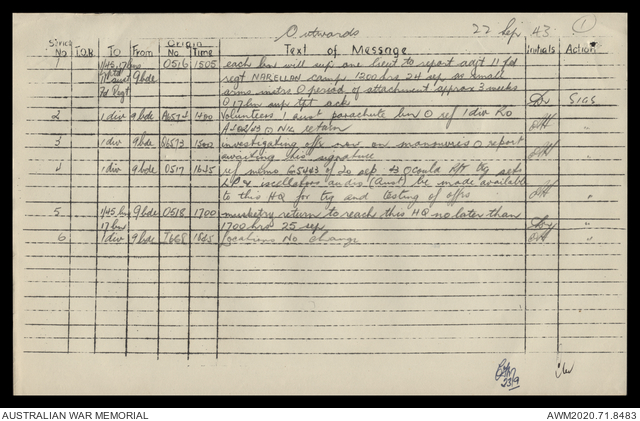 Outwards 22 Sep 43 1
Serial No T.O.R. To From Origin No Time Text of Message Initials Action
1 1/45, 17 bns 9 bde O516 1505 each bn will sup one lieut to report adjt 11 fd
11 aust fd Regt regt NARELLON camp 1200 hrs 24 sep in small
arms instrs O period of attachment approx 3 weeks
O 17 bn sup tpt ack Sigs
2 1 div 9 bde 1400 Volunteers 1 aust parachute bn O ref 1 div RO
Nil return "
3 1 div 9 bde 1500 investigating offr now on manouvres O report
awaiting his signature "
4 1 div 9 bde O517 1645 ref memo G5443 of 20 sep 43 O could trg sets
be made available
to this HQ for trg and testing of offrs "
5 1/45 bns 9 bde O518 1700 musketry return to reach this HQ no later than
17 bn 1700 hrs 25 sep "
6 1 div 9 bde 1845 locations No change "
23/9
AUSTRALIAN WAR MEMORIAL AWM2020.71.8483